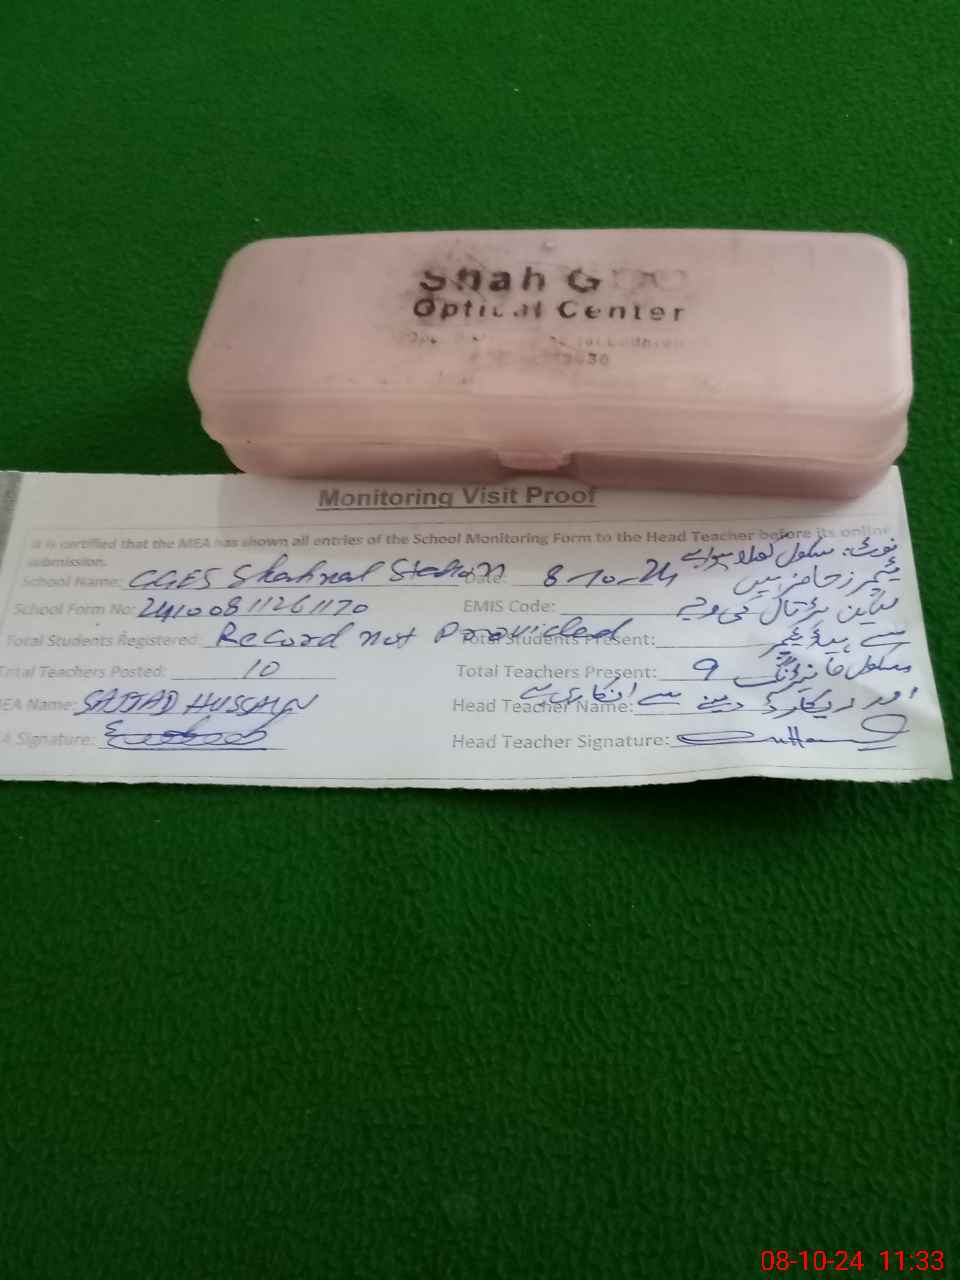 Shah G
Optical Center
Monitoring Visit Proof
It is certified that the MEA has shown all entries of the School Monitoring Form to the Head Teacher before its online
submission.
School Name: GGES Shahnal Station Date: 8-10-24
School Form No: 24100811261170 EMIS Code:
Total Students Registered: Record not Provided Total Students Present:
Total Teachers Posted: 10 Total Teachers Present: 9
MEA Name: SAJJAD HUSSAIN Head Teacher Name:
A Signature: Head Teacher Signature:
نوٹ، سکول کھلا ہوا ہے
ٹیچرز حاضر ہیں
لیکن ہڑتال کی وجہ
سے ہیڈ ٹیچر
سکول
اور ریکارڈ دینے سے انکاری ہے
08-10-24 11:33